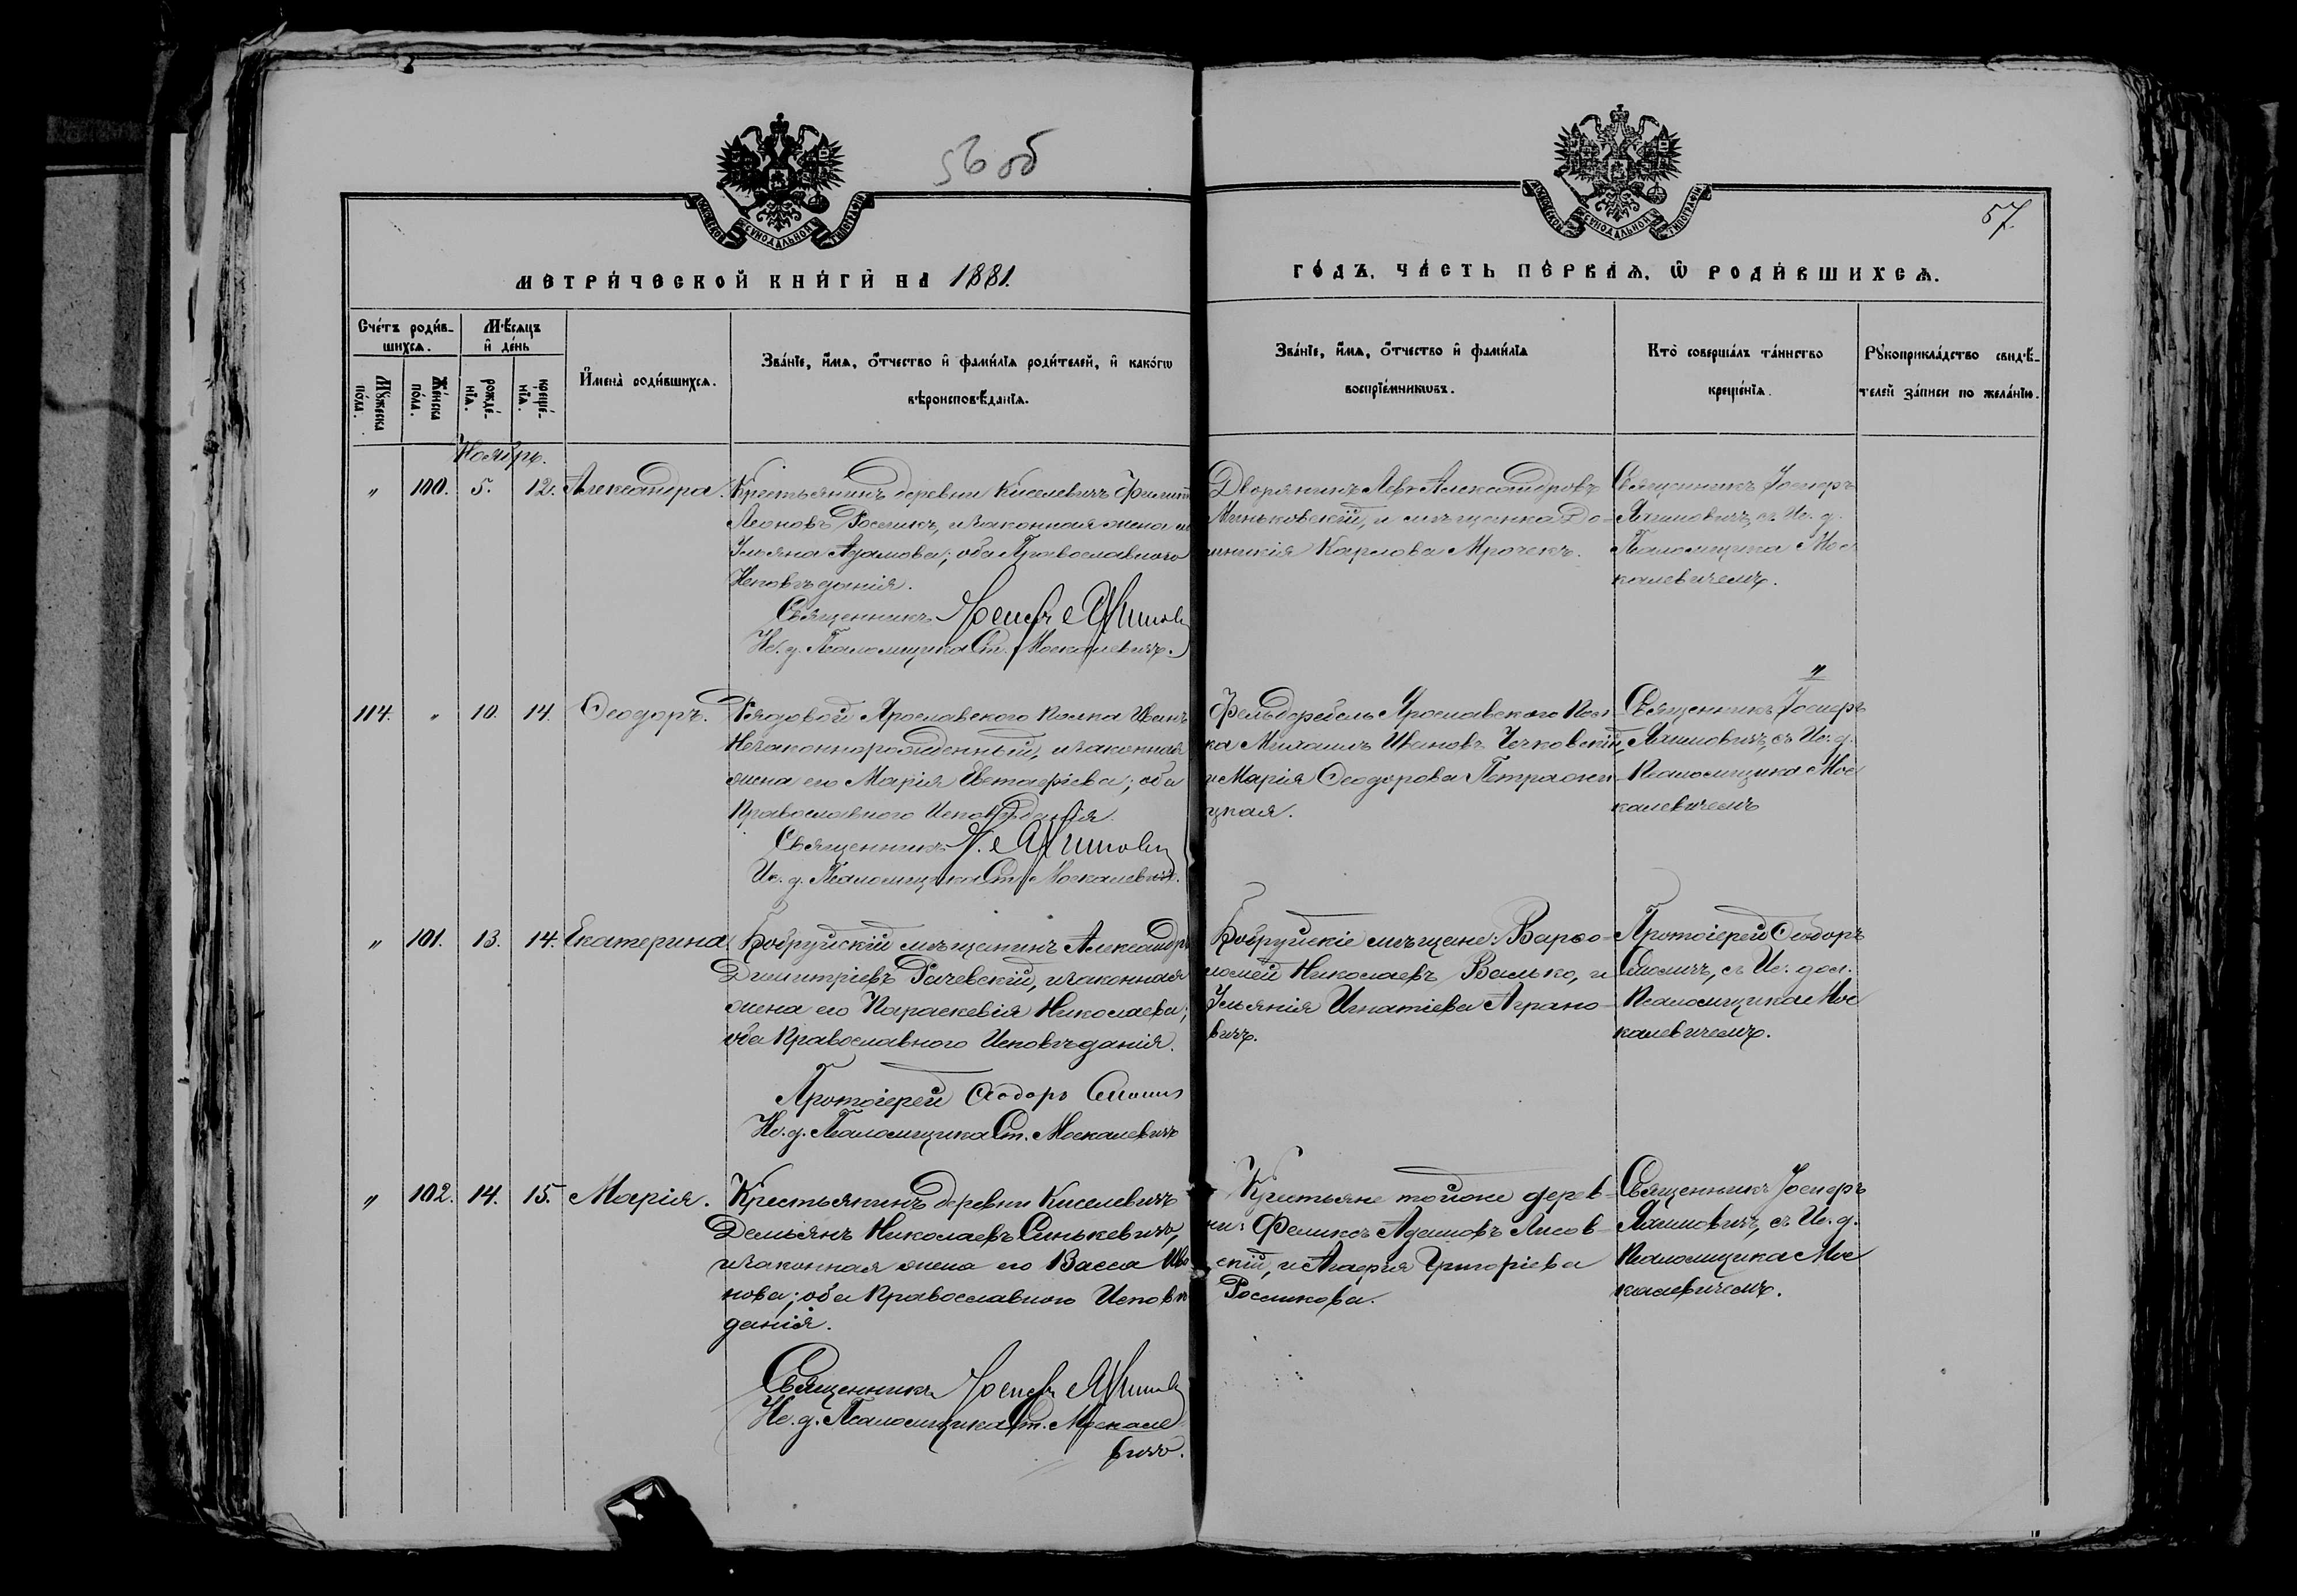 56 об
57
МЕТРИ́ЧЕСКОЙ КНИ́ГИ НА 1881.
ГО́ДЪ, ЧА́СТЬ ПЕ́РВАѦ, Ѿ РОДИ́ВШИХСѦ.
Сче́тъ роди́в-
шихсѧ.
Мꙋ́жеска по́ла.
Же́нска по́ла.
Мѣ́сяцъ
и҆ де́нь
рожде́-
нїѧ.
креще́-
нїѧ.
И҆мена̀ роди́вшихсѧ.
Зва́нїе, и҆́мѧ, ѻ҆́тчество и҆ фами́лїѧ роди́телей, и҆ како́гѡ
вѣроисповѣ́данїѧ.
Зва́нїе, и҆́мѧ, ѻ҆́тчество и҆ фами́лїѧ
воспрїе́мникѡвъ.
Кто̀ соверша́лъ та́инство
креще́нїѧ.
Рꙋкоприкла́дство свидѣ́-
телей за́писи по жела́нїю.
Ноябрь.
" 100. 5. 12. Александра.
Крестьянинъ деревни Киселевичъ Филипп
Леоновъ Росликъ, и законная жена его
Ульяна Адамова; оба Православного
Исповѣданія.
Священникъ Іосифъ Яхимович
Ис. д. Псаломщика Ст. Москалевичъ.
Дворянинъ Левъ Александровъ
Миньковскій, и мѣщанка До-
миникія Карлова Мрочекъ.
Священникъ Іосифъ
Яхимовичъ, съ Ис. д.
Псаломщика Мос
калевичемъ.
"
114. " 10. 14. Ѳеодоръ.
Рядовой Ярославского Полка Иванъ
Незаконнорожденный, и законная
жена его Марія Евстафіева; оба
Православного Исповѣданія.
Священникъ І. Яхимович
Ис. д. Псаломщика Ст. Москалевичъ.
Фельдфебель Ярославского Пол-
ка Михаилъ Ивановъ Чечковскій,
и Марія Ѳеодорова Петражи-
цкая.
Священникъ Іосифъ
Яхимовичъ, съ Ис. д.
Псаломщика Мос
калевичемъ
" 101. 13. 14. Екатерина
Бобруйскій мѣщанинъ Александръ
Димитріевъ Рачевскій, и законная
жена его Параскевія Николаева;
оба Православного Исповѣданія.
Протоіерей Ѳеодоръ
Ис. д. Псаломщика Ст. Москалевичъ
Бобруйскіе мѣщане: Варѳо-
ломей Николаевъ Валько, и
Ульянія Игнатіева Аграно-
вичъ.
Протоіерей Ѳеодоръ
съ Ис. дол.
Псаломщика Мос
калевичемъ.
" 102. 14. 15. Марія.
Крестьянинъ деревни Киселевичъ
Демьянъ Николаевъ Синькевичъ,
и законная жена его Васса Ива
нова; оба Православного Исповѣ
данія.
Священникъ Іосифъ Яхимович
Ис. д. Псаломщика Ст. Москале
вичъ.
Крестьяне тойоже дерев-
ни: Феликсъ Адамовъ Лисов-
скій, и Агафія Григоріева
Росликова.
Священникъ Іосифъ
Яхимовичъ, съ Ис. д.
Псаломщика Мос
калевичемъ.